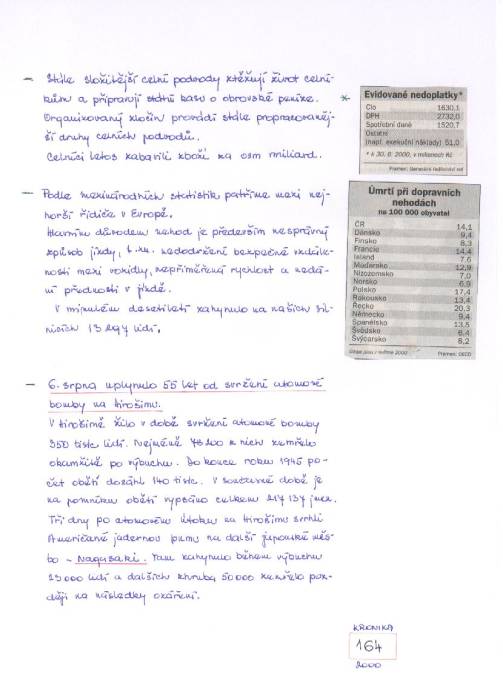 – Stále složitější celní podvody ztěžují život celní-
kům a připravují státní kasu o obrovské peníze. *
Organizovaný zločin provádí stále propracovaněj-
ší druhy celních podvodů.
Celníci letos zabavili zboží za osm miliard.
Evidované nedoplatky*
Clo 1630,1
DPH 2732,0
Spotřební daně 1520,7
Ostatní
(např. exekuční náklady) 51,0
* k 30. 6. 2000, v milionech Kč
Pramen: Generální ředitelství cel
– Podle mezinárodních statistik patříme mezi nej-
horší řidiče v Evropě.
Hlavním důvodem nehod je především nesprávný
způsob jízdy, t.zn. nedodržení bezpečné vzdále-
nosti mezi vozidly, nepřiměřená rychlost a nedá-
ní přednosti v jízdě.
V minulém desetiletí zahynulo na našich sil-
nicích 13 247 lidí.
Úmrtí při dopravních
nehodách
na 100 000 obyvatel
ČR 14,1
Dánsko 9,4
Finsko 8,3
Francie 14,4
Island 7,6
Maďarsko 12,9
Nizozemsko 7,0
Norsko 6,9
Polsko 17,4
Rakousko 13,4
Řecko 20,3
Německo 9,4
Španělsko 13,5
Švédsko 6,4
Švýcarsko 8,2
Údaje jsou z května 2000 Pramen: OECD
– 6. srpna uplynulo 55 let od svržení atomové
bomby na Hirošimu.
V Hirošimě žilo v době svržení atomové bomby
350 tisíc lidí. Nejméně 78 100 z nich zemřelo
okamžitě po výbuchu. Do konce roku 1945 po-
čet obětí dosáhl 140 tisíc. V současné době je
na pomníku obětí vypsáno celkem 217 137 jmen.
Tři dny po atomovém útoku na Hirošimu svrhli
Američané jadernou pumu na další japonské měs-
to – Nagasaki. Tam zahynulo během výbuchu
27 000 lidí a dalších zhruba 50 000 zemřelo poz-
ději na následky ozáření.
KRONIKA
164
2000